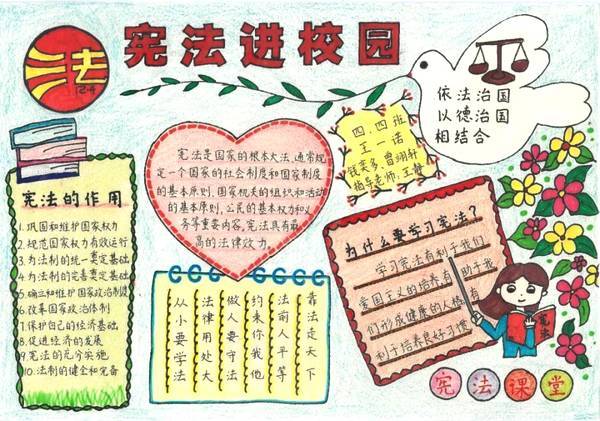 宪法进校园
法
12·4
依法治国
以德治国
相结合
四.四班
王一诺
钱美多.曾翊轩
指导老师:王静
宪法是国家的根本大法,通常规
定一个国家的社会制度和国家制度
的基本原则,国家机关的组织和活动
的基本原则,公民的基本权力和义
务等重要内容,宪法具有最
高的法律效力。
宪法的作用
1.巩固和维护国家权力
2.规范国家权力有效运行
3.为法制的统一奠定基础
4.为法制的完善奠定基础
5.确立和维护国家政治制度
6.改革国家政治体制
7.保护自己的经济基础
8.促进经济的发展
9.宪法的充分实施
10.法制的健全和完备
从小要学法
法律用处大
做人要守法
约束你我他
法前人平等
靠法走天下
为什么要学习宪法?
学习宪法有利于我们
爱国主义的培养有助于我
们形成健康的人格有
利于培养良好习惯
宪法
宪法课堂